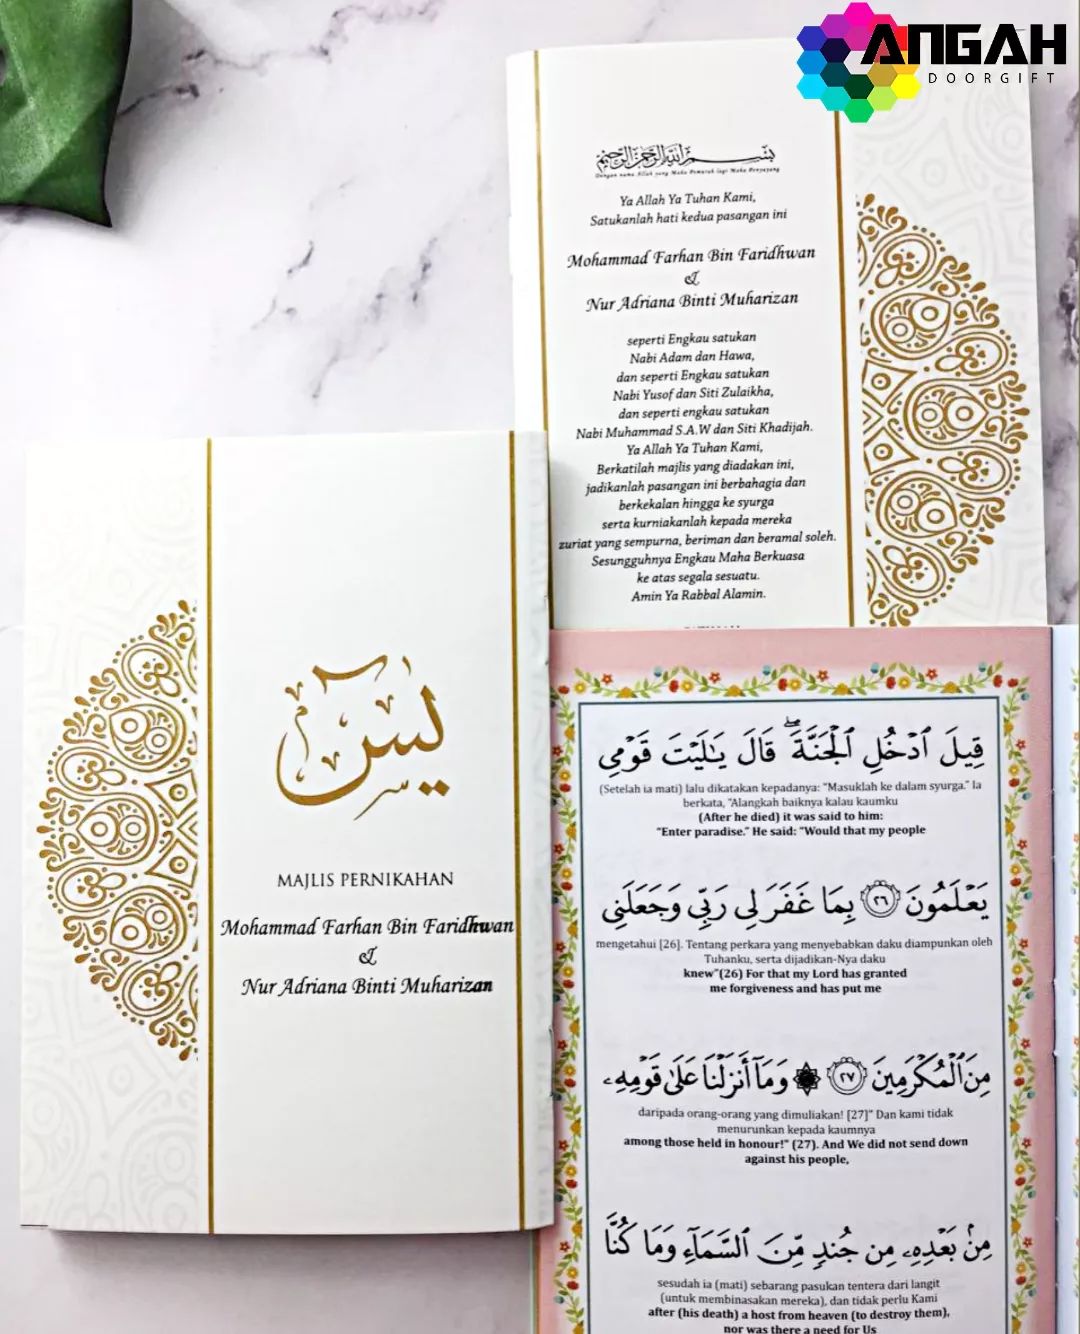 ANGAH
DOORGIFT
بسم الله الرحمن الرحيم
Dengan nama Allah yang Maha Pemurah lagi Maha Penyayang
Ya Allah Ya Tuhan Kami,
Satukanlah hati kedua pasangan ini
Mohammad Farhan Bin Faridhwan
&
Nur Adriana Binti Muharizan
seperti Engkau satukan
Nabi Adam dan Hawa,
dan seperti Engkau satukan
Nabi Yusof dan Siti Zulaikha,
dan seperti engkau satukan
Nabi Muhammad S.A.W dan Siti Khadijah.
Ya Allah Ya Tuhan Kami,
Berkatilah majlis yang diadakan ini,
jadikanlah pasangan ini berbahagia dan
berkekalan hingga ke syurga
serta kurniakanlah kepada mereka
zuriat yang sempurna, beriman dan beramal soleh.
Sesungguhnya Engkau Maha Berkuasa
ke atas segala sesuatu.
Amin Ya Rabbal Alamin.
يس
MAJLIS PERNIKAHAN
Mohammad Farhan Bin Faridhwan
&
Nur Adriana Binti Muharizan
قِيلَ ٱدْخُلِ ٱلْجَنَّةَ ۖ قَالَ يَـٰلَيْتَ قَوْمِى
(Setelah ia mati) lalu dikatakan kepadanya: "Masuklah ke dalam syurga." Ia
berkata, "Alangkah baiknya kalau kaumku
(After he died) it was said to him:
"Enter paradise." He said: "Would that my people
يَعْلَمُونَ ٢٦ بِمَا غَفَرَ لِى رَبِّى وَجَعَلَنِى
mengetahui [26]. Tentang perkara yang menyebabkan daku diampunkan oleh
Tuhanku, serta dijadikan-Nya daku
knew"(26) For that my Lord has granted
me forgiveness and has put me
مِنَ ٱلْمُكْرَمِينَ ٢٧ ۞ وَمَآ أَنزَلْنَا عَلَىٰ قَوْمِهِۦ
daripada orang-orang yang dimuliakan! [27]" Dan kami tidak
menurunkan kepada kaumnya
among those held in honour!" (27). And We did not send down
against his people,
مِنۢ بَعْدِهِۦ مِن جُندٍ مِّنَ ٱلسَّمَآءِ وَمَا كُنَّا
sesudah ia (mati) sebarang pasukan tentera dari langit
(untuk membinasakan mereka), dan tidak perlu Kami
after (his death) a host from heaven (to destroy them),
nor was there a need for Us